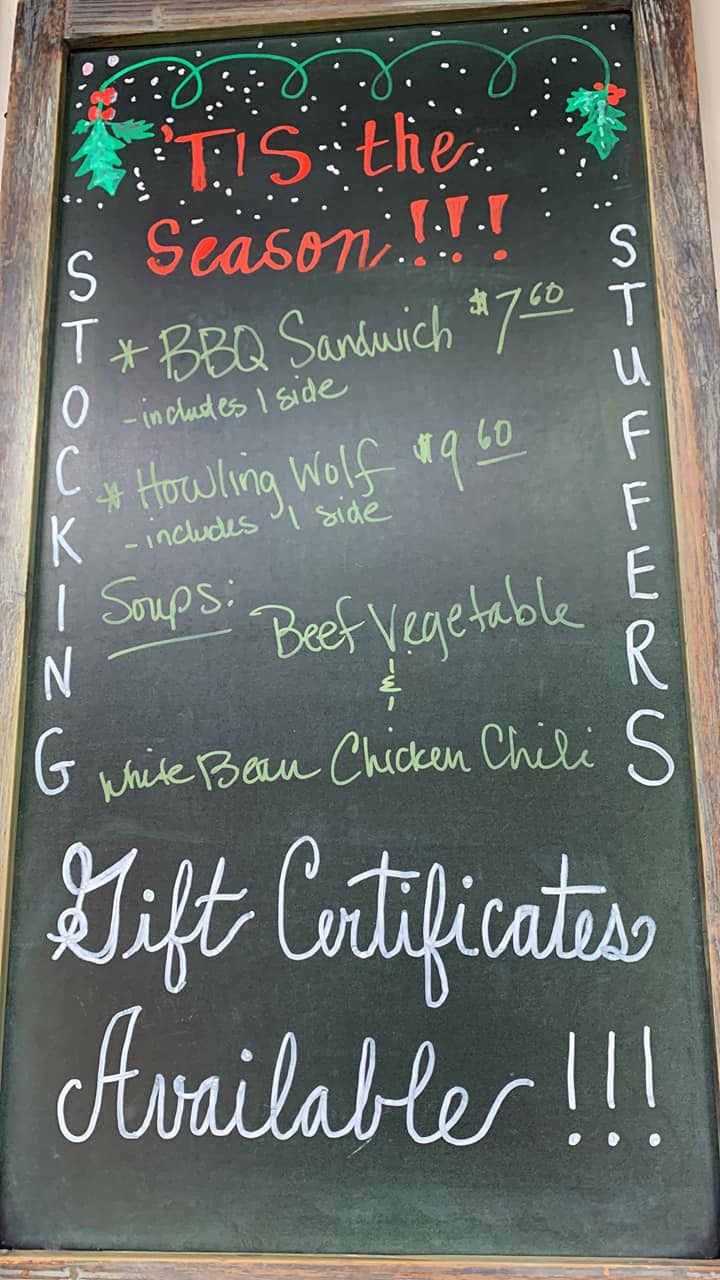 'TIS the
Season!!!
STOCKING
STUFFERS
* BBQ Sandwich $7.60
- includes 1 side
* Howling Wolf $9.60
- includes 1 side
Soups:
Beef Vegetable
&
White Bean Chicken Chili
Gift Certificates
Available!!!